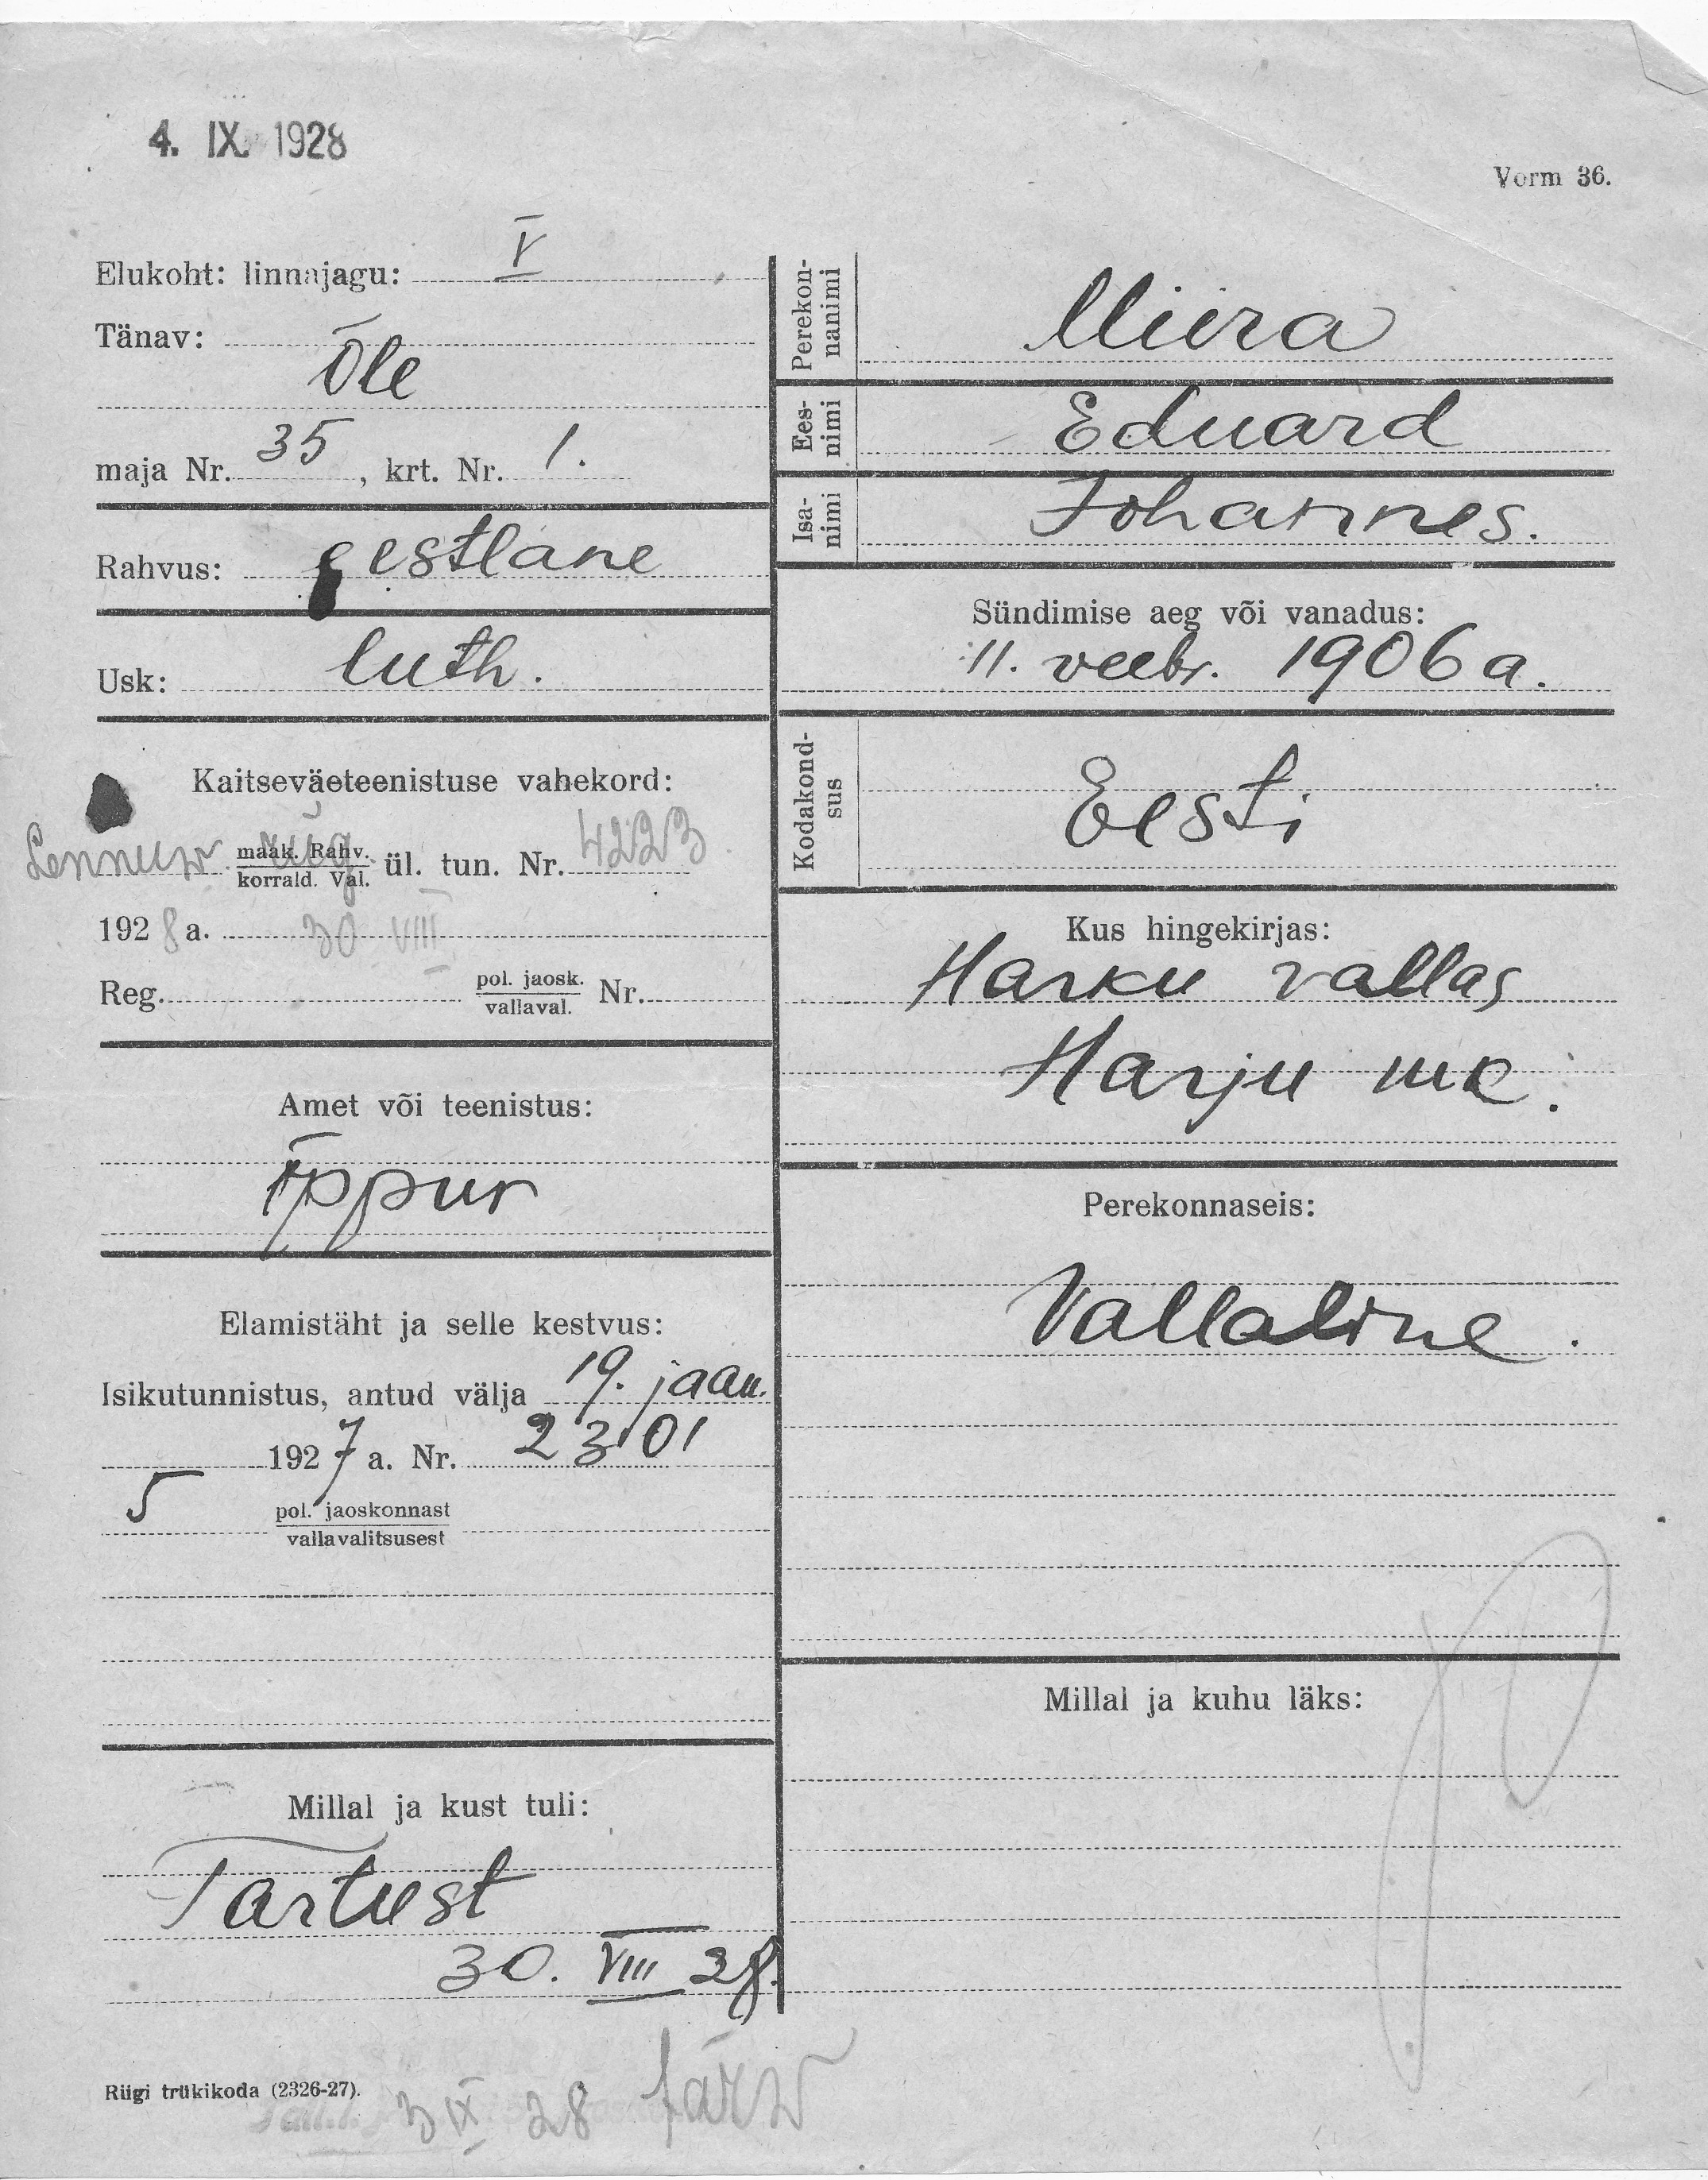 4. IX. 1928
Vorm 36.
Elukoht: linnajagu: V
Tänav:
Õle
maja Nr. 35, krt. Nr. 1.
Rahvus: eestlane
Usk: luth.
Kaitseväeteenistuse vahekord:
maak. Rahv.
korrald. Val. ül. tun. Nr. 4223
1928 a. 30 VIII
Reg. pol. jaosk.
vallaval. Nr.
Amet või teenistus:
õppur
Elamistäht ja selle kestvus:
Isikutunnistus, antud välja 19. jaan.
1927 a. Nr. 2301
5 pol. jaoskonnast
vallavalitsusest
Millal ja kust tuli:
Tartust
30. VIII 28.
Riigi trükikoda (2326-27).
3 IX 28
Perekon-
nanimi
Miira
Ees-
nimi
Eduard
Isa-
nimi
Johannes.
Sündimise aeg või vanadus:
11. veebr. 1906 a.
Kodakond-
sus
Eesti
Kus hingekirjas:
Harku vallas
Harju mk.
Perekonnaseis:
Vallaline.
Millal ja kuhu läks: